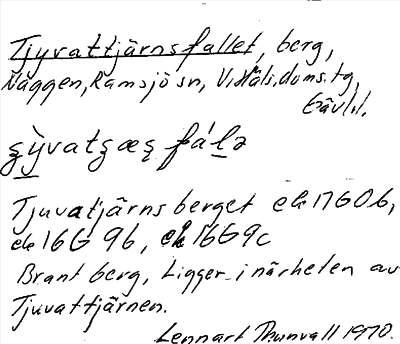 Tjyvattjärnsfallet, berg,
Naggen, Ramsjö sn, Vidfäls. doms. tg,
Gävl.l.
ʒỳvatʒæʂ fáḷə
Tjuvatjärnsberget ek 17G0b,
ek 16G 9b, ek 16G9c
Brant berg, Ligger i närheten av
Tjuvattjärnen.
Lennart Thunvall 1970.